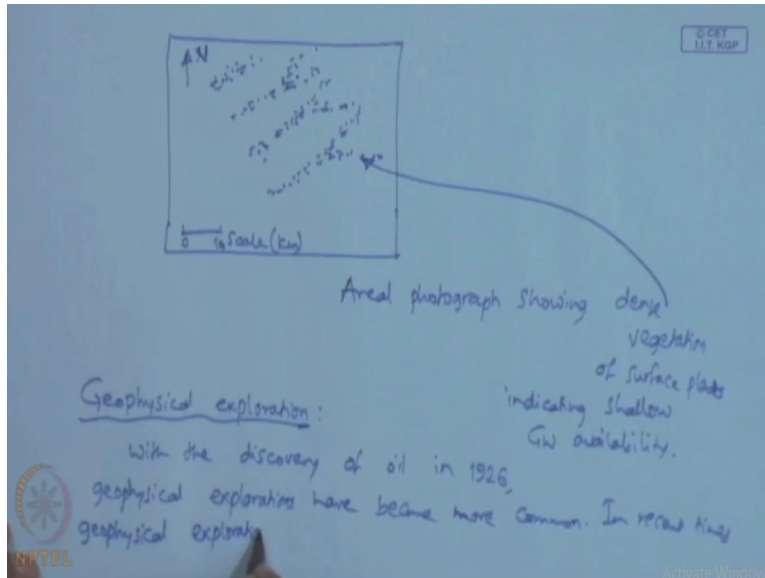 © CET
I.I.T. KGP
N
0 Scale (Km)
Areal photograph showing dense
vegetation
of surface plants
indicating shallow
GW availability.
Geophysical exploration :
With the discovery of oil in 1926,
geophysical exploration have become more common. In recent times
geophysical explorati
NPTEL
Activate Window